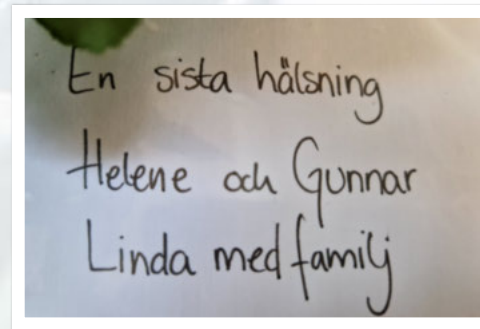 En sista hälsning
Helene och Gunnar
Linda med familj